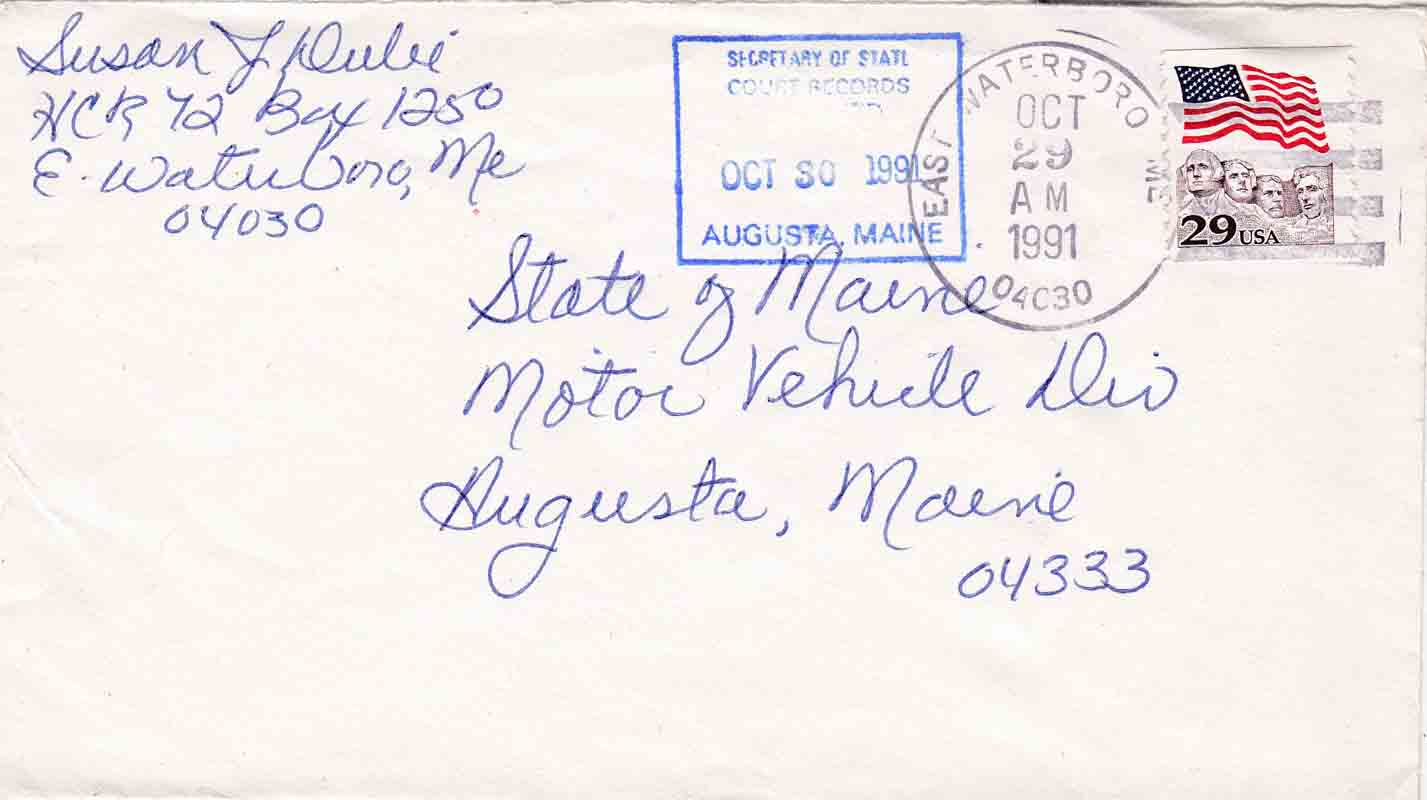 Susan J Dubie
HCR 72 Box 1250
E. Waterboro, Me
04030
SECRETARY OF STATE
COURT RECORDS
OCT 30 1991
AUGUSTA, MAINE
EAST WATERBORO ME
OCT
29
AM
1991
04030
29 USA
State of Maine
Motor Vehicle Div
Augusta, Maine
04333